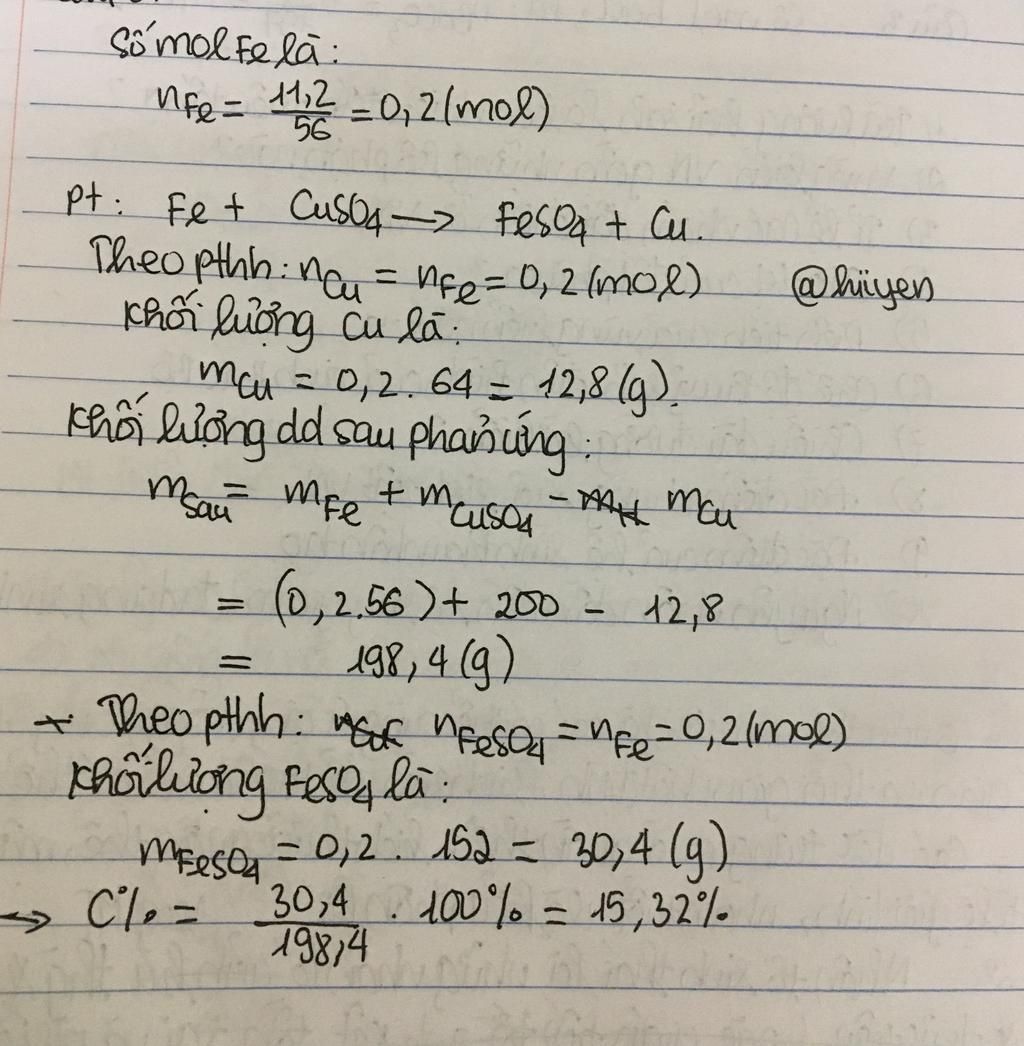 Số mol Fe là:
nFe = 11,2/56 = 0,2 (mol)
pt: Fe + CuSO4 → FeSO4 + Cu.
Theo pthh: nCu = nFe = 0,2 (mol) @hiiyen
Khối lượng Cu là:
mCu = 0,2 . 64 = 12,8 (g).
Khối lượng dd sau phản ứng:
msau = mFe + mCuSO4 - mCu
= (0,2.56) + 200 - 12,8
= 198,4 (g)
* Theo pthh: nFeSO4 = nFe = 0,2 (mol)
Khối lượng FeSO4 là:
mFeSO4 = 0,2 . 152 = 30,4 (g)
→ C% = 30,4/198,4 . 100% = 15,32%